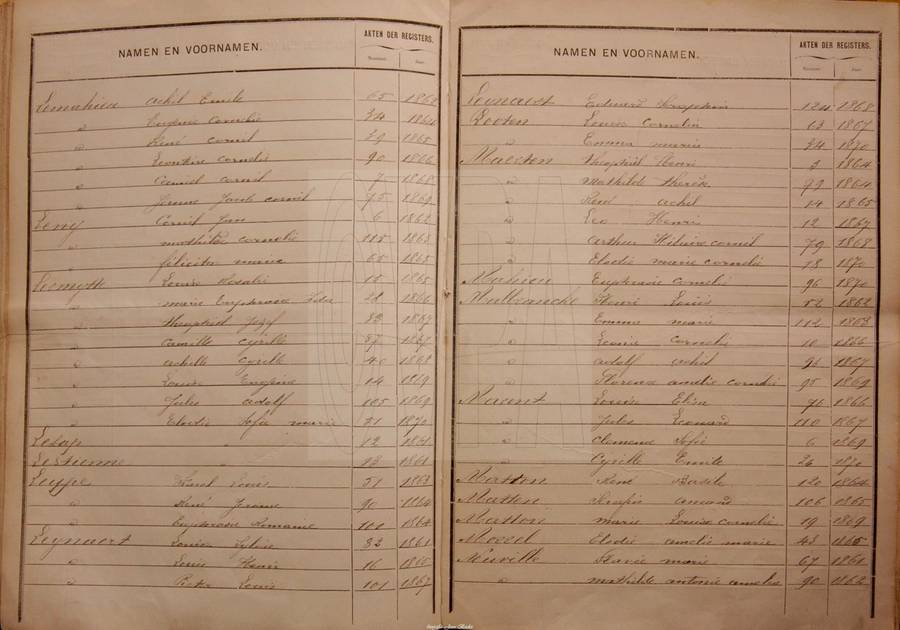 NAMEN EN VOORNAMEN. AKTEN DER REGISTERS.
Nummer. Jaar.
Lemahieu achil Emile 65 1862
" Eugenie Cornelie 34 1864
" René cornil 29 1865
" Leontine Cornelie 90 1866
" Cornil cornil 7 1868
" Jerome Jacob cornil 75 1869
Leny Cornil Jan 6 1862
" mathilde cornelie 115 1863
" felicita marie 65 1865
Louis Rosalie 15 1865
" marie Euphrasie 28 1866
" Theophiel Jozef 32 1867
" Camille cyrille 87 1867
" achille cyrille 40 1868
" Louis Eugène 14 1869
" Jules adolf 105 1869
" Elodie Sofie marie 21 1870
Lesap " 12 1861
Lestienne " 13 1861
Leupe Karel Louis 51 1863
" René Jerome 90 1864
" Euphrasie Romanie 100 1864
Leynaert Louise Sylvie 32 1861
" Louis Henri 16 1865
" Louis 101 1867
NAMEN EN VOORNAMEN. AKTEN DER REGISTERS.
Nummer. Jaar.
Leynaert Eduard Seraphin 124 1868
Looten Louise Cornelia 63 1867
" Emma marie 34 1870
Maerten Theophiel Henri 3 1864
" Mathilde 99 1864
" René achil 14 1865
" Leo Henri 12 1867
" Arthur Hilaire cornil 79 1868
" Elodie marie cornelie 18 1870
Mahieu Euphrasie cornelie 96 1870
Henri Louis 52 1862
" Emma marie 112 1863
" Leonie Cornelie 10 1866
" adolf achil 96 1867
" Florence amelie cornelie 95 1869
Louise Elisa 76 1866
" Jules Leonard 110 1867
" Clemence Sofie 6 1869
" Cyrille Emile 26 1870
Matton René Basile 120 1864
Matten Seraphin amand 106 1865
Matton marie Louise cornelie 19 1869
Elodie amelie marie 43 1865
Neuville Flavie marie 67 1861
" mathilde antonie amelie 90 1862